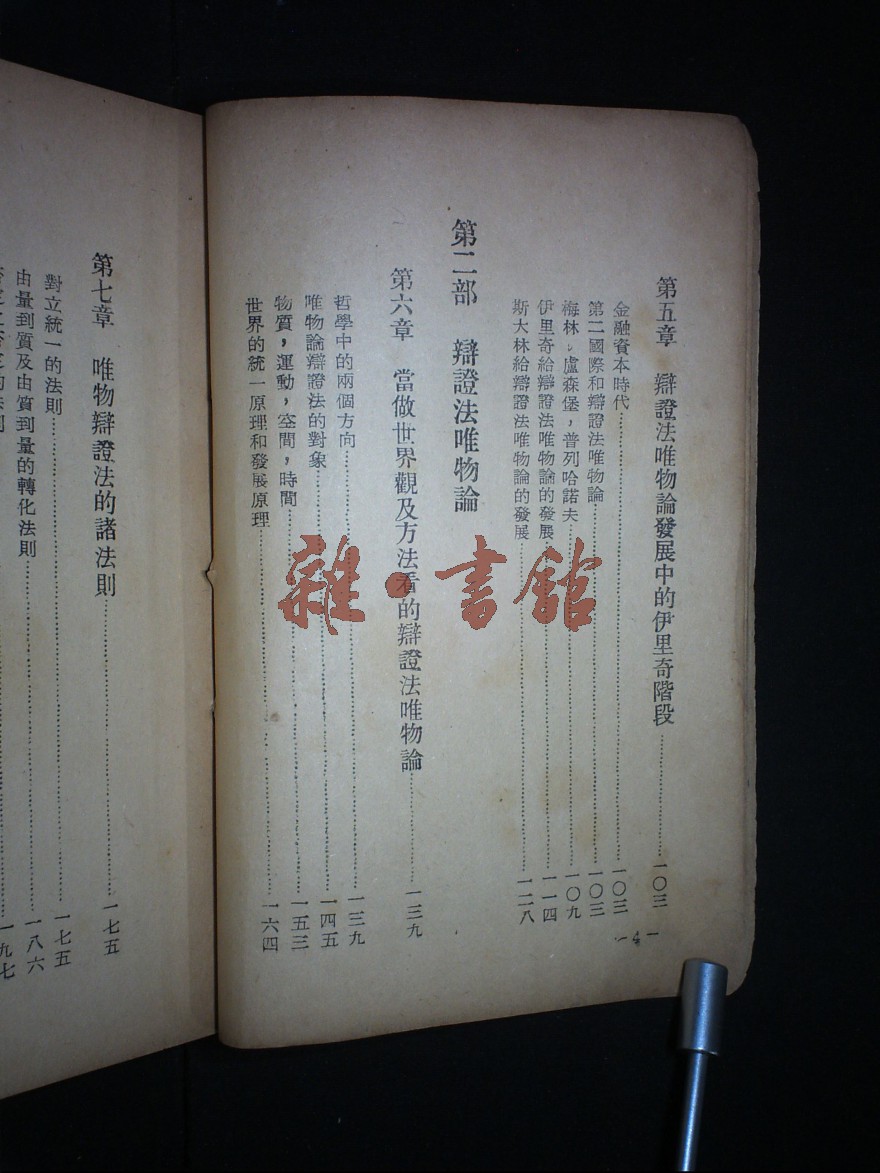 第五章　辯證法唯物論發展中的伊里奇階段……一〇三
金融資本時代……一〇三
第二國際和辯證法唯物論……一〇三
梅林，盧森堡，普列哈諾夫……一〇九
伊里奇給辯證法唯物論的發展……一一四
斯大林給辯證法唯物論的發展……一二八
第二部　辯證法唯物論
第六章　當做世界觀及方法看的辯證法唯物論……一三九
哲學中的兩個方向……一三九
唯物論辯證法的對象……一四五
物質，運動，空間，時間……一五三
世界的統一原理和發展原理……一六四
—4—
第七章　唯物辯證法的諸法則……一七五
對立統一的法則……一七五
由量到質及由質到量的轉化法則……一八六
的法則……一九七
雜·書館